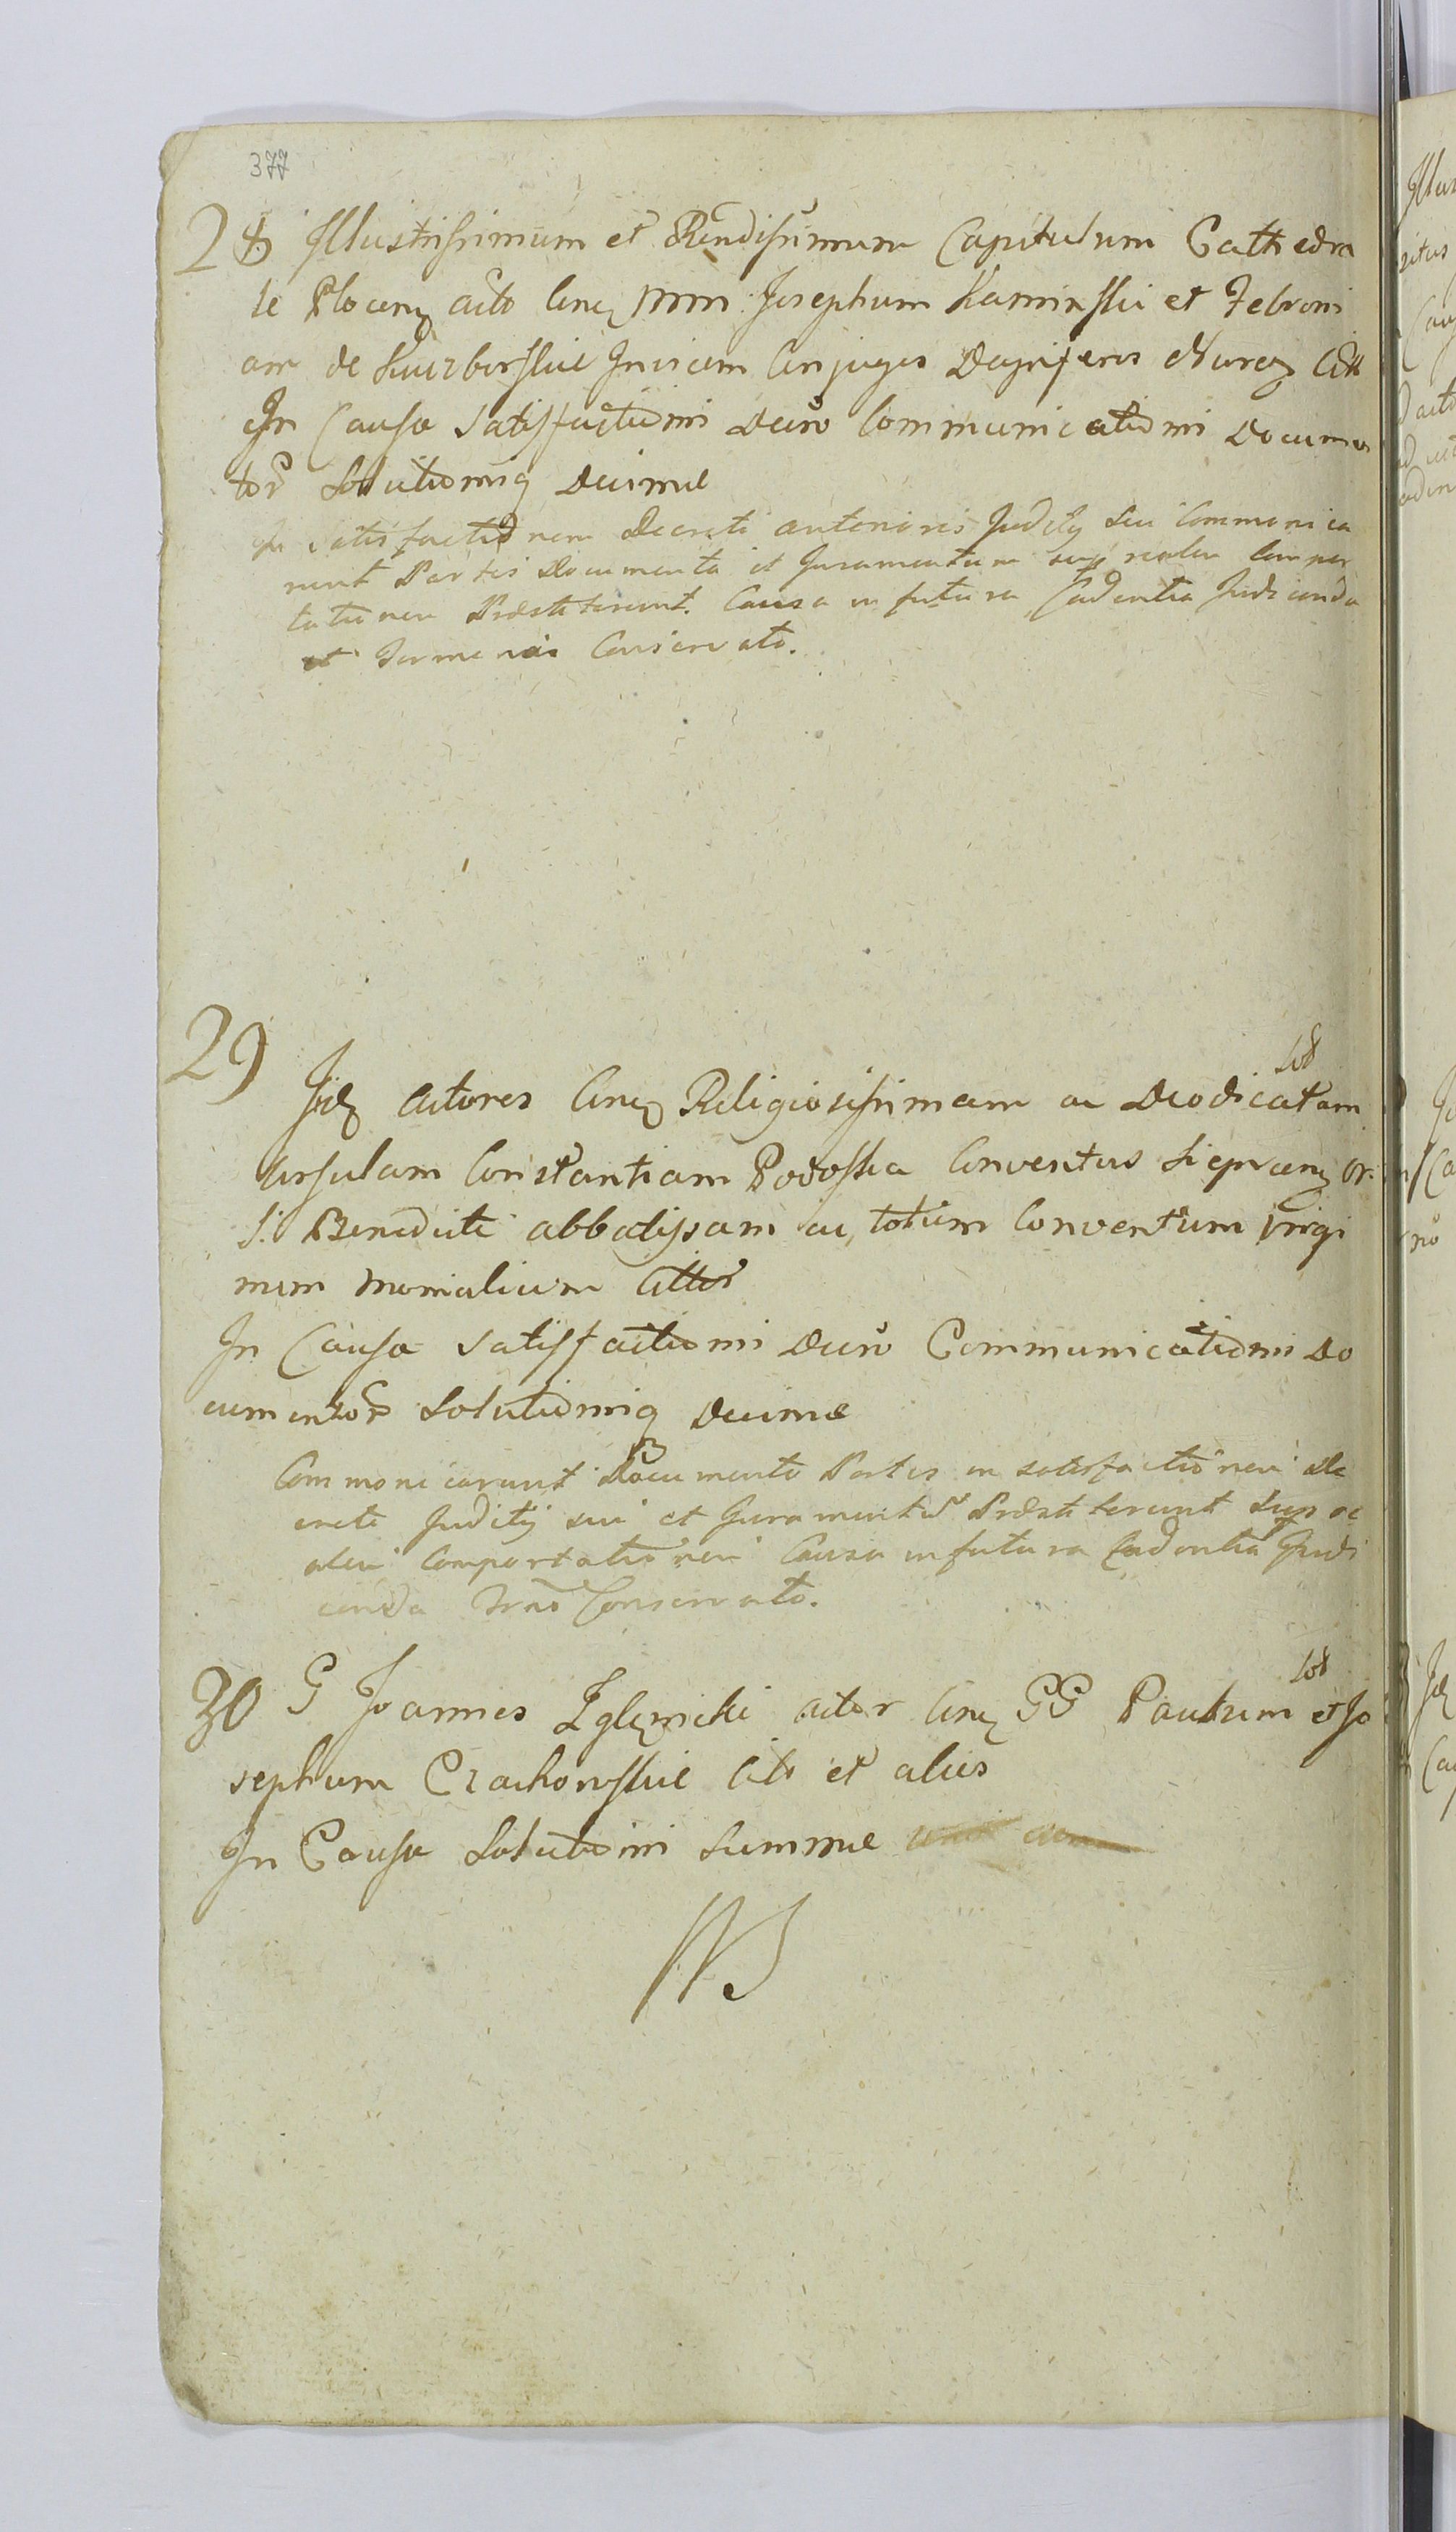 377
28 Illustrissimum et Rendissimum Capitulum Cathedra
le Plocen acto cena MM Josephum Kaminskii et Febroni
am de Kuczborskie Invicem Conjuges Dapiferos Nuren Citt
In Causa Satisfactionis Decro Communicationis Documen
tor Solutionisq Decimae
In Satisfactionem Decreti anterioris Judicij Sui Communica
runt Partes Documenta et Juramentum sup realem Compor
tationem Praestiterunt. Causa in futura Cadentia Judicanda
et Termino Conservato.
29
Sol
Iid actores Cena Religiosissimam ac Deodicatam
Ursulam Constantiam Podoska Conventus Sieprcen Or.
S. Benedicti abbatissam ac totum Conventum Virgi
num Monialium Cittos
In Causa Satisfactionis Decro Communicationis Do
cumentor Solutionisq Decimae
Communicarunt Documenta Partes in satisfactionem De
creti Judicij sui et Juramentum Praestiterunt Sup re
alem Comportationem Causa in futura Cadentia Judi
canda Trno Conservato.
Sol
30 G Joannes Zglenicki actor Cena GG Paulum et Jo
sephum Czachowskie Cito et alios
In Causa Solutionis Summae